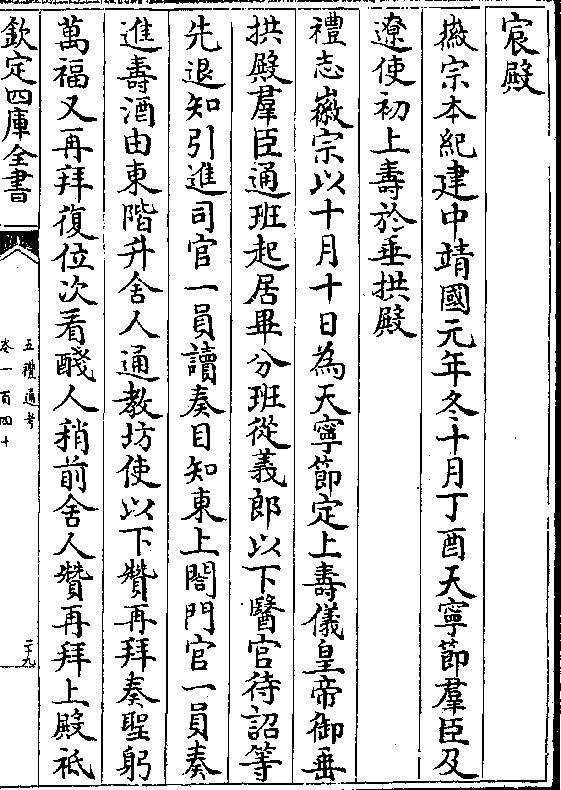 宸殿
徽宗本紀建中靖國元年冬十月丁酉天寧節羣臣及
遼使初上壽於垂拱殿
禮志徽宗以十月十日為天寧節定上壽儀皇帝御垂
拱殿羣臣通班起居畢分班從義郎以下醫官待詔等
先退知引進司官一員讀奏目知東上閤門官一員奏
進壽酒由東階升舍人通教坊使以下贊再拜奏聖躬
萬福又再拜復位次看醆人稍前舍人贊再拜上殿祗
欽定四庫全書
五禮通考
卷一百四十
二十九